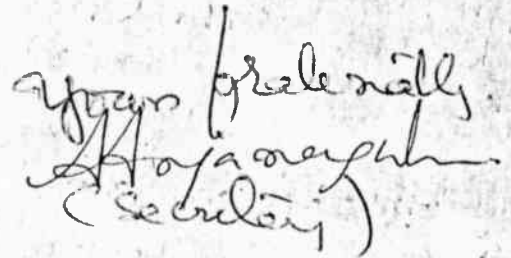 yours fraternally,
(secretary)